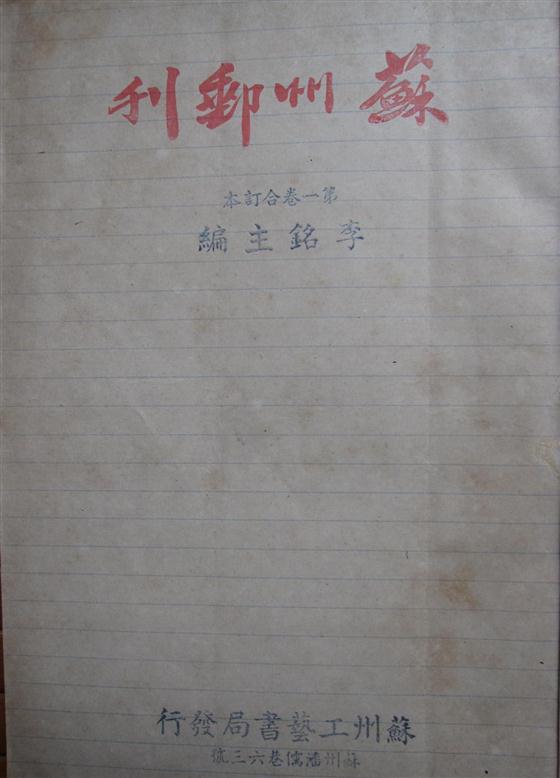 蘇州郵刊
第一卷合訂本
李銘主編
蘇州工藝書局發行
蘇州潘儒巷六三號